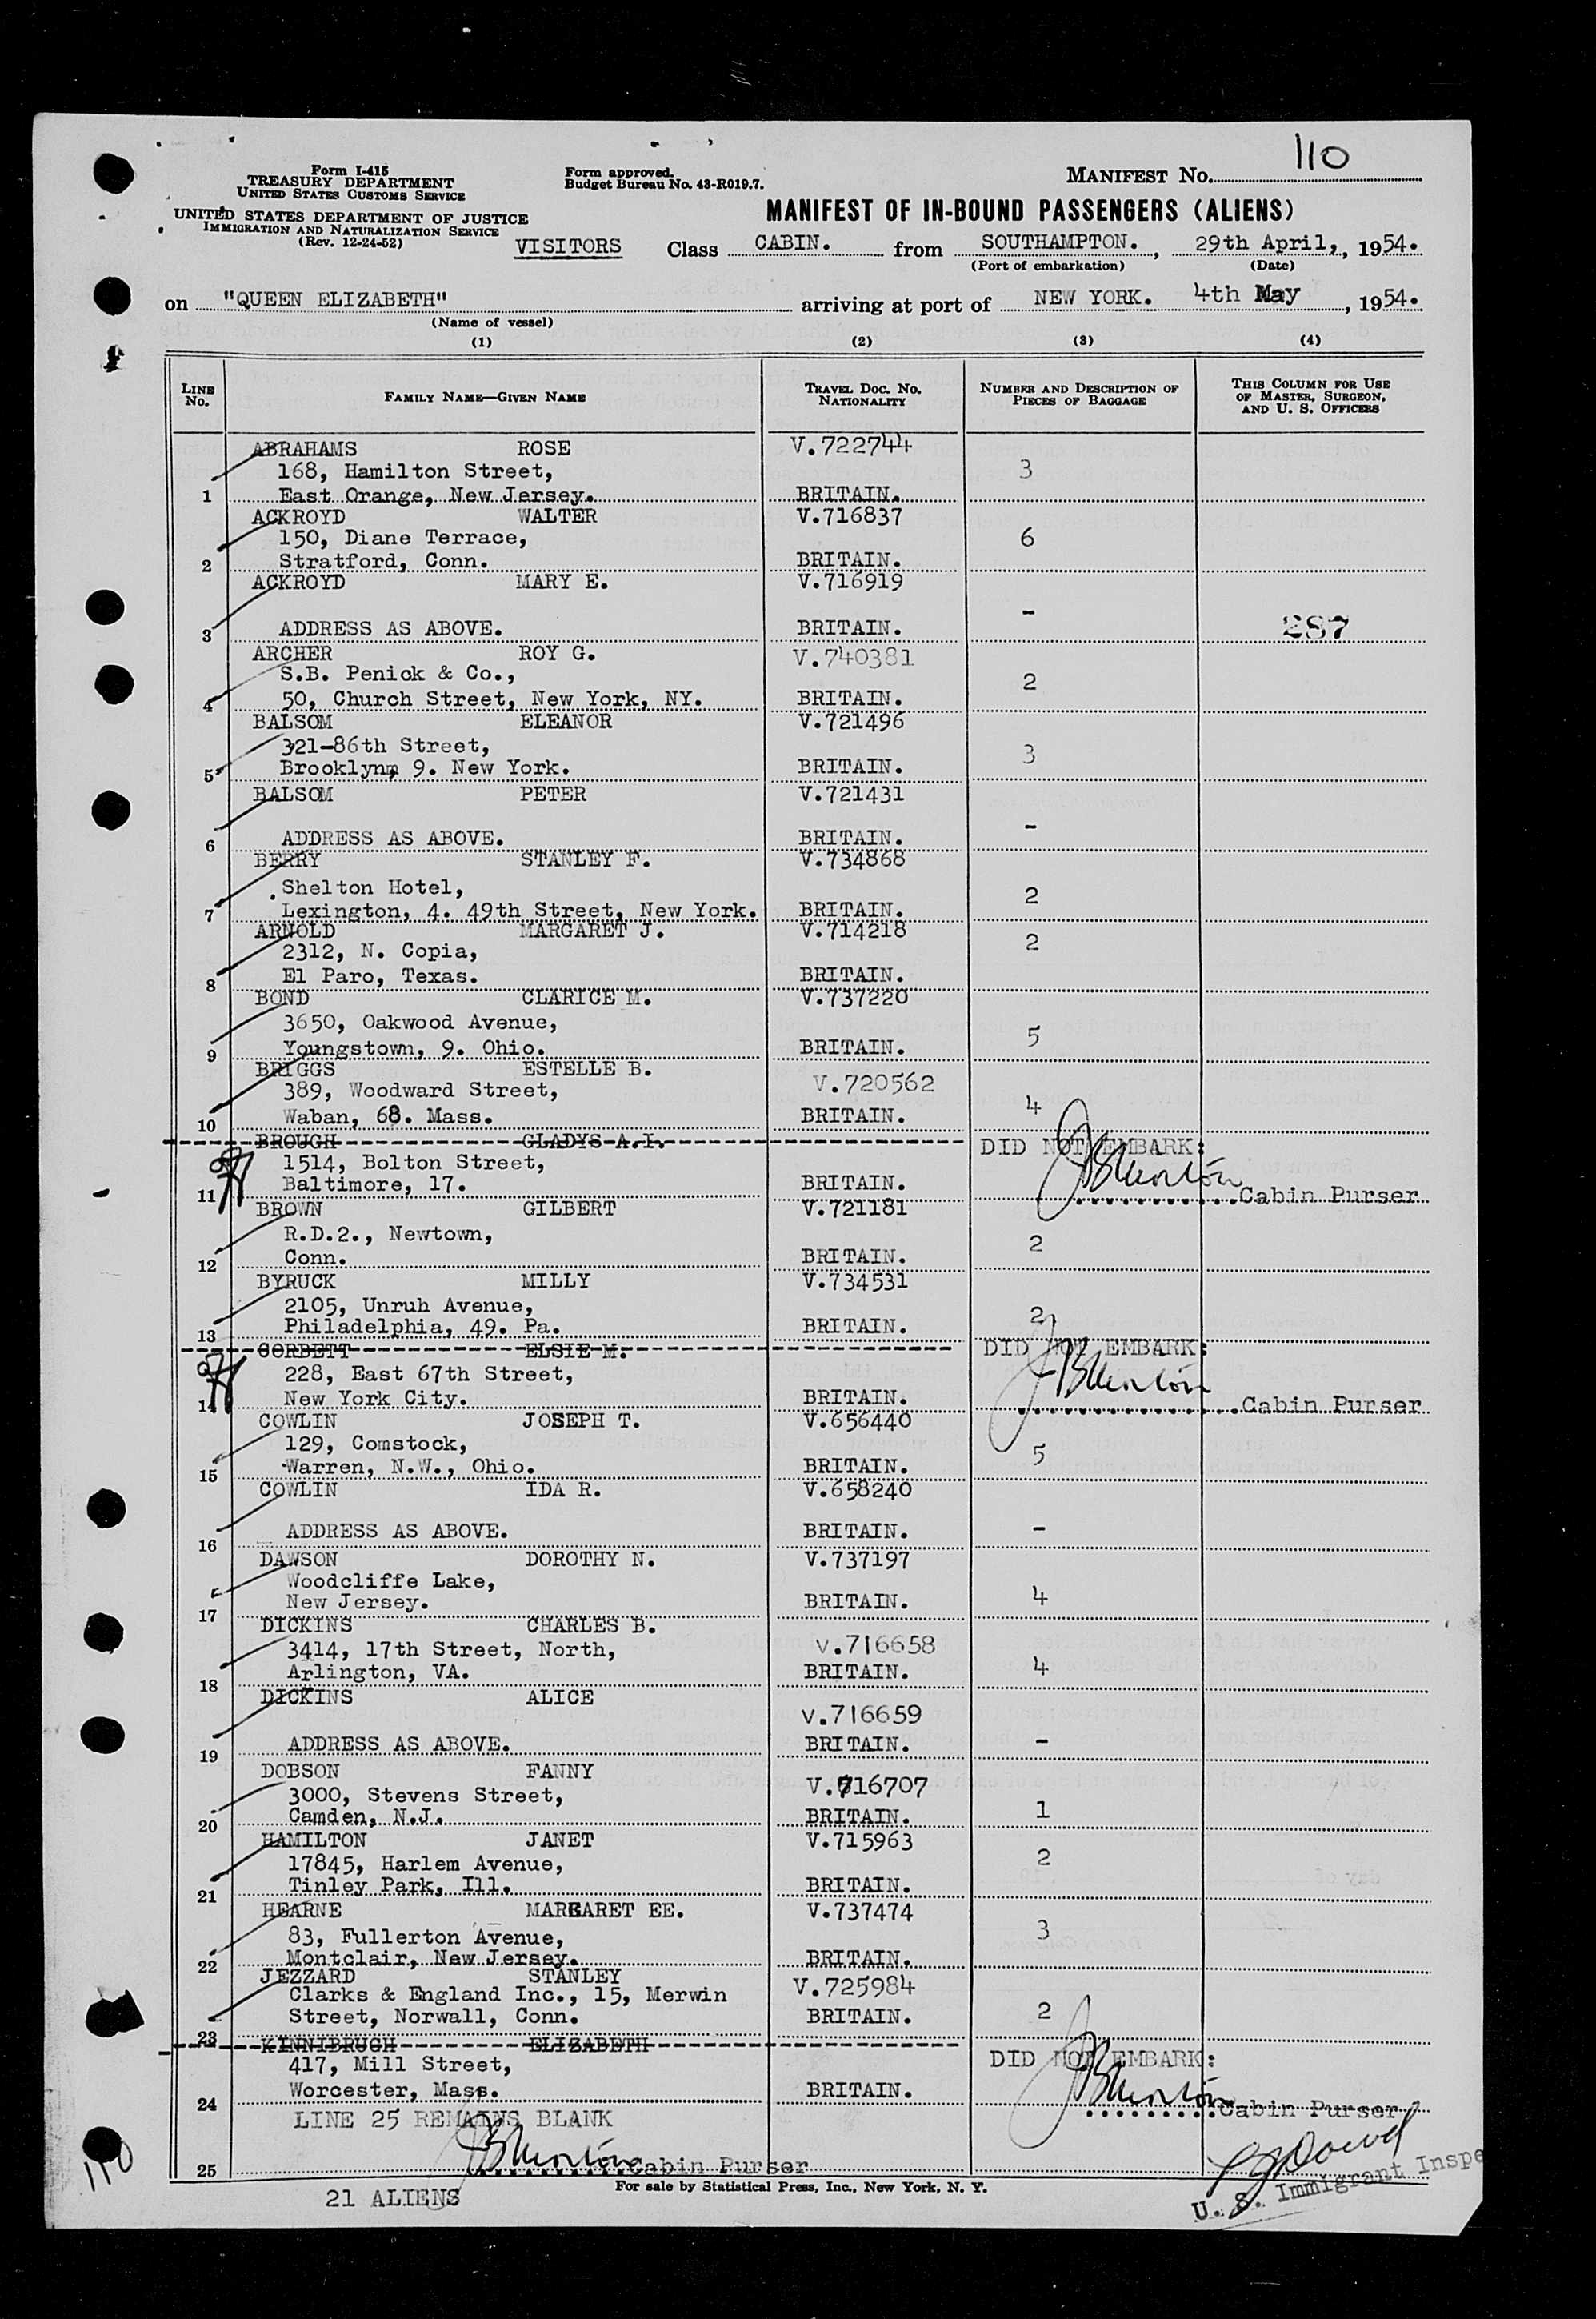 110
Form I-415
TREASURY DEPARTMENT
UNITED STATES CUSTOMS SERVICE
UNITED STATES DEPARTMENT OF JUSTICE
IMMIGRATION AND NATURALIZATION SERVICE
(Rev. 12-24-52)
Form approved.
Budget Bureau No. 43-R019.7.
MANIFEST NO.
MANIFEST OF IN-BOUND PASSENGERS (ALIENS)
VISITORS Class CABIN. from SOUTHAMPTON., 29th April,, 1954.
(Port of embarkation) (Date)
on "QUEEN ELIZABETH" arriving at port of NEW YORK. 4th May, 1954.
(Name of vessel)
(1) (2) (3) (4)
LINE NO. FAMILY NAME—GIVEN NAME TRAVEL DOC. NO. NATIONALITY NUMBER AND DESCRIPTION OF PIECES OF BAGGAGE THIS COLUMN FOR USE OF MASTER, SURGEON, AND U. S. OFFICERS
ABRAHAMS ROSE V.722744
168, Hamilton Street, 3
1 East Orange, New Jersey. BRITAIN.
ACKROYD WALTER V.716837
150, Diane Terrace, 6
2 Stratford, Conn. BRITAIN.
ACKROYD MARY E. V.716919
-
3 ADDRESS AS ABOVE. BRITAIN. 287
ARCHER ROY G. V.740381
S.B. Penick & Co., 2
4 50, Church Street, New York, NY. BRITAIN.
BALSOM ELEANOR V.721496
321-86th Street, 3
5 Brooklyn, 9. New York. BRITAIN.
BALSOM PETER V.721431
-
6 ADDRESS AS ABOVE. BRITAIN.
BERRY STANLEY F. V.734868
Shelton Hotel, 2
7 Lexington, 4. 49th Street, New York. BRITAIN.
ARNOLD MARGARET J. V.714218
2312, N. Copia, 2
8 El Paro, Texas. BRITAIN.
BOND CLARICE M. V.737220
3650, Oakwood Avenue, 5
9 Youngstown, 9. Ohio. BRITAIN.
BRIGGS ESTELLE B. V.720562
389, Woodward Street, 4
10 Waban, 68. Mass. BRITAIN.
BROUGH GLADYS A.I. DID NOT EMBARK:
1514, Bolton Street,
Baltimore, 17. BRITAIN.
11 Cabin Purser
BROWN GILBERT V.721181
R.D.2., Newtown, 2
12 Conn. BRITAIN.
BYRUCK MILLY V.734531
2105, Unruh Avenue, 2
13 Philadelphia, 49. Pa. BRITAIN.
CORBETT ELSIE M. DID NOT EMBARK:
228, East 67th Street,
14 New York City. BRITAIN. Cabin Purser
COWLIN JOSEPH T. V.656440
129, Comstock, 5
15 Warren, N.W., Ohio. BRITAIN.
COWLIN IDA R. V.658240
16 ADDRESS AS ABOVE. BRITAIN. -
DAWSON DOROTHY N. V.737197
Woodcliffe Lake,
17 New Jersey. BRITAIN. 4
DICKINS CHARLES B.
3414, 17th Street, North, V.716658
18 Arlington, VA. BRITAIN. 4
DICKINS ALICE
V.716659
19 ADDRESS AS ABOVE. BRITAIN. -
DOBSON FANNY
3000, Stevens Street, V.716707
20 Camden, N.J. BRITAIN. 1
HAMILTON JANET V.715963
17845, Harlem Avenue, 2
21 Tinley Park, Ill. BRITAIN.
HEARNE MARGARET EE. V.737474
83, Fullerton Avenue, 3
22 Montclair, New Jersey. BRITAIN.
JEZZARD STANLEY
Clarks & England Inc., 15, Merwin V.725984
Street, Norwall, Conn. BRITAIN. 2
23
KINNIBRUGH ELIZABETH DID NOT EMBARK:
417, Mill Street,
24 Worcester, Mass. BRITAIN. Cabin Purser
LINE 25 REMAINS BLANK
25 Cabin Purser
For sale by Statistical Press, Inc., New York, N. Y.
21 ALIENS
U. S. Immigrant Inspe
110